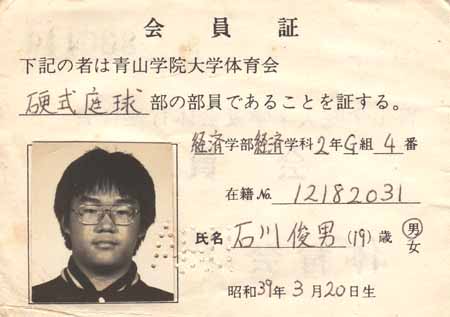 会員証
下記の者は青山学院大学体育会
硬式庭球部の部員であることを証する。
経済学部経済学科2年G組4番
在籍No.12182031
氏名 石川俊男(19)歳 男女
昭和39年3月20日生